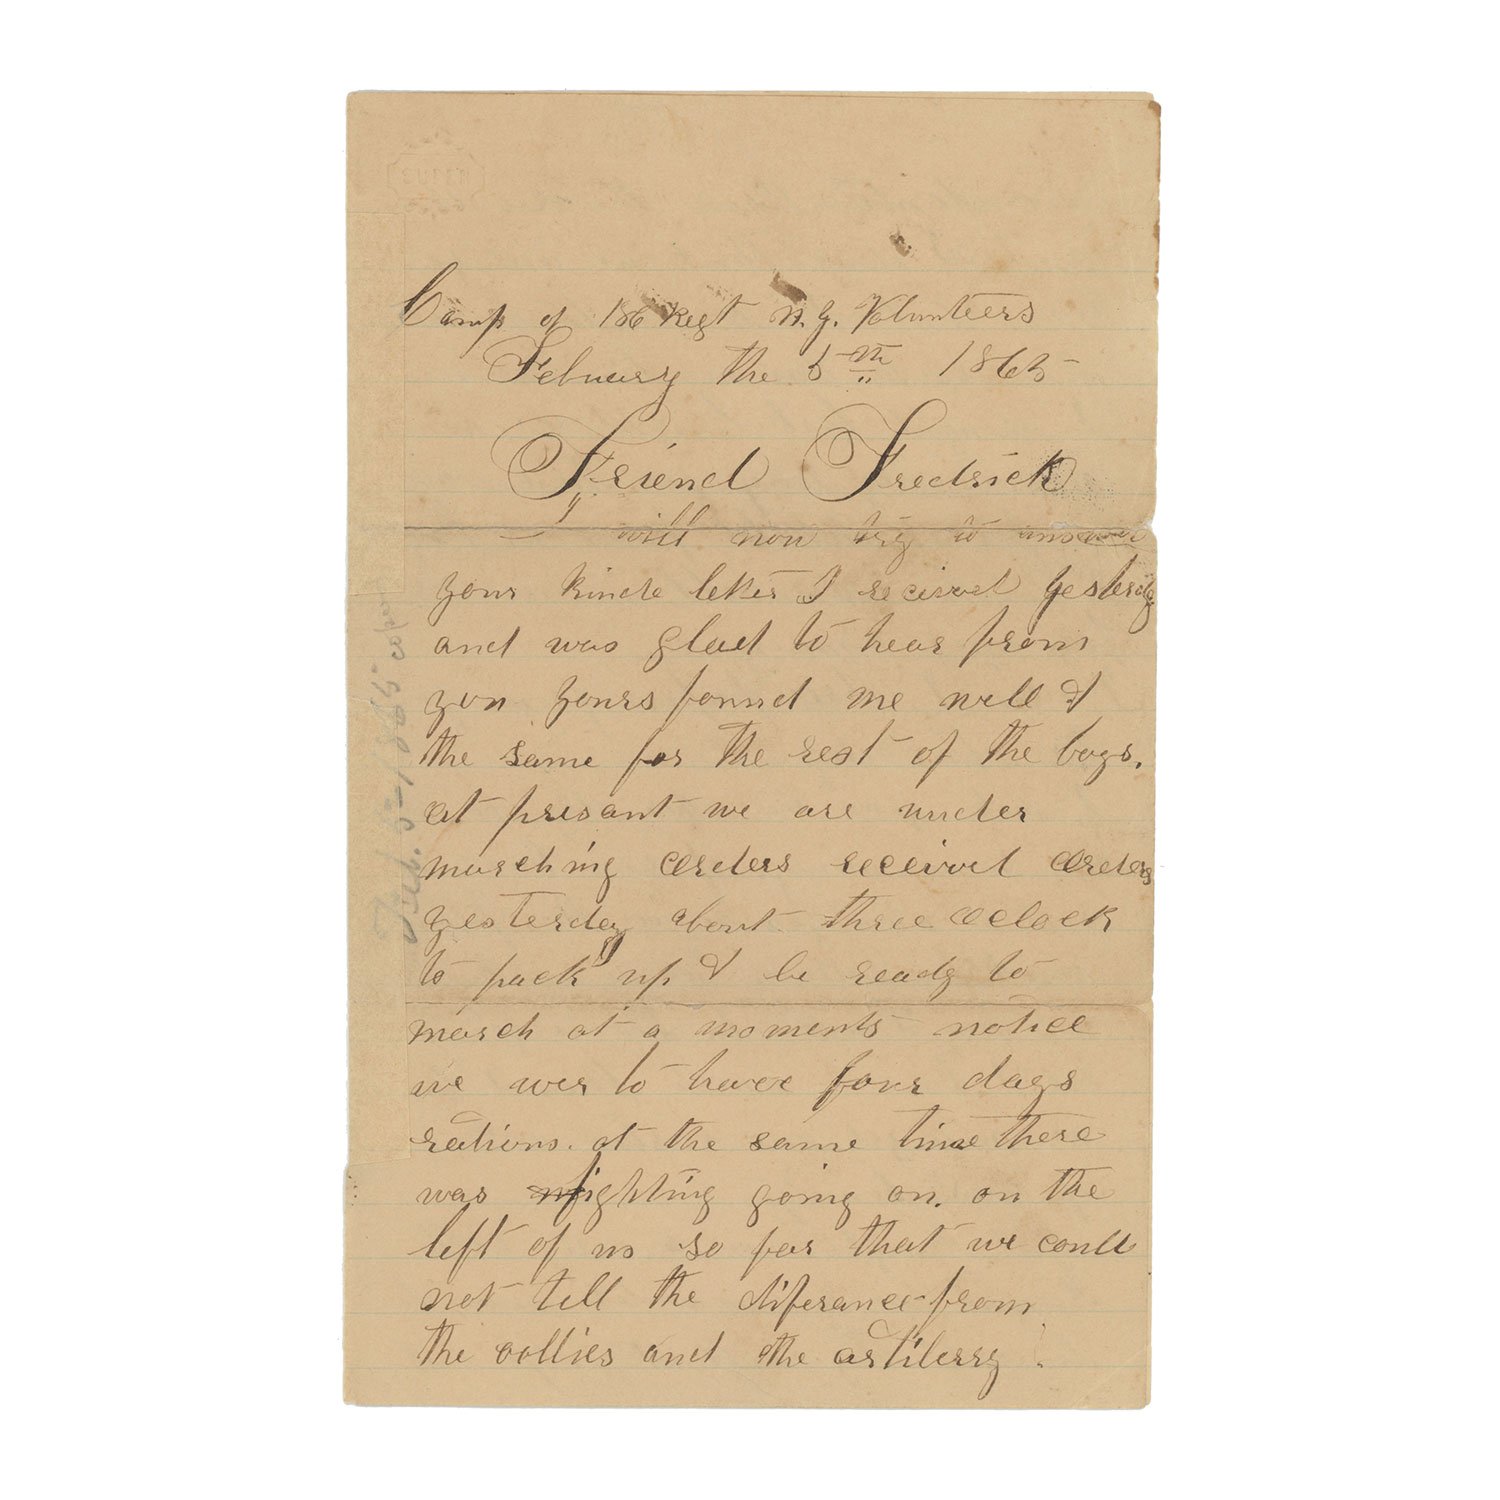 Camp of 186 Regt N. Y. Volunteers
Febuary the 5th 1865
Friend Fredrick
I will now try to answer
your kinde letter I recived yesterdy
and was glad to hear from
you yours found me well &
the same for the rest of the boys.
at presant we are under
marching orders receivd orders
yesterdy about three oclock
to pack up & be ready to
march at a moments notice
we wer to have four days
rations. at the same time there
was fighting going on. on the
left of us so far that we could
not tell the diferance from
the vollies and the artilerry.
Feb. 5-1865.